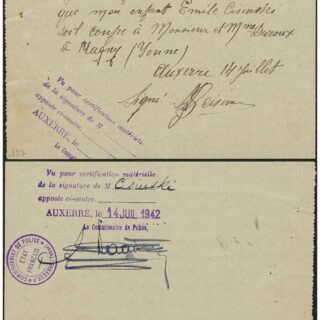 que mon enfant Emile Cisinski
soit confié à Monsieur et Mme Duroux
à Magny (Yonne)
Auxerre 14 juillet
Signé
Vu pour certification matérielle
de la signature de M
apposée ci-contre.
AUXERRE, le
Le Commis
157
Vu pour certification matérielle
de la signature de M Cisinski
apposée ci-contre.
AUXERRE, le 14 JUIL 1942
Le Commissaire de Police,
COMMISSARIAT DE POLICE
ETAT
FRANÇAIS